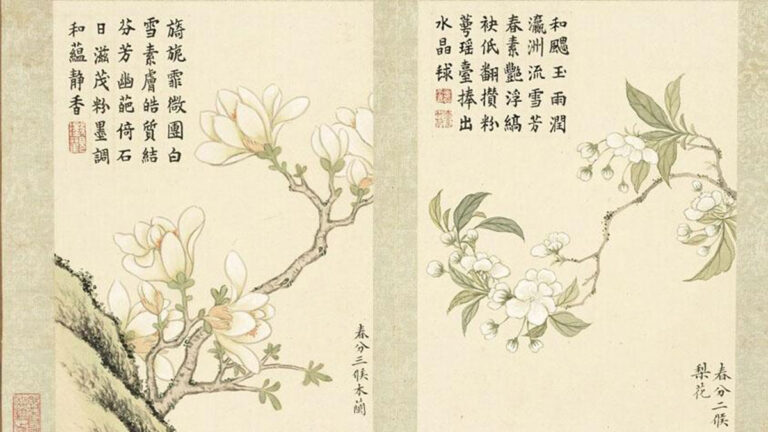 和颸玉雨潤
瀛洲流雪芳
春素艷浮縞
袂低翻攢粉
萼瑤臺捧出
水晶毬
春分二候
梨花
旖旎霏微團白
雪素膚皓質結
芬芳幽葩倚石
日滋茂粉墨調
和蘊静香
春分三候木蘭